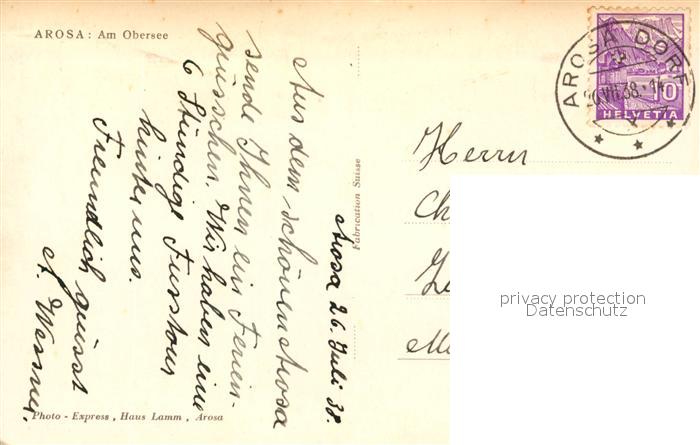 AROSA: Am Obersee
Arosa 26. Juli 38.
Aus dem schönen Arosa
sende Ihnen ein Ferien-
grüsschen. Wir haben eine
6 Stündige Fusstour
hinter uns.
Freundlich grüsst
Fabrication Suisse
Photo - Express, Haus Lamm, Arosa
AROSA DORF
26.VII.38.-14
10
HELVETIA
Herrn
privacy protection
Datenschutz